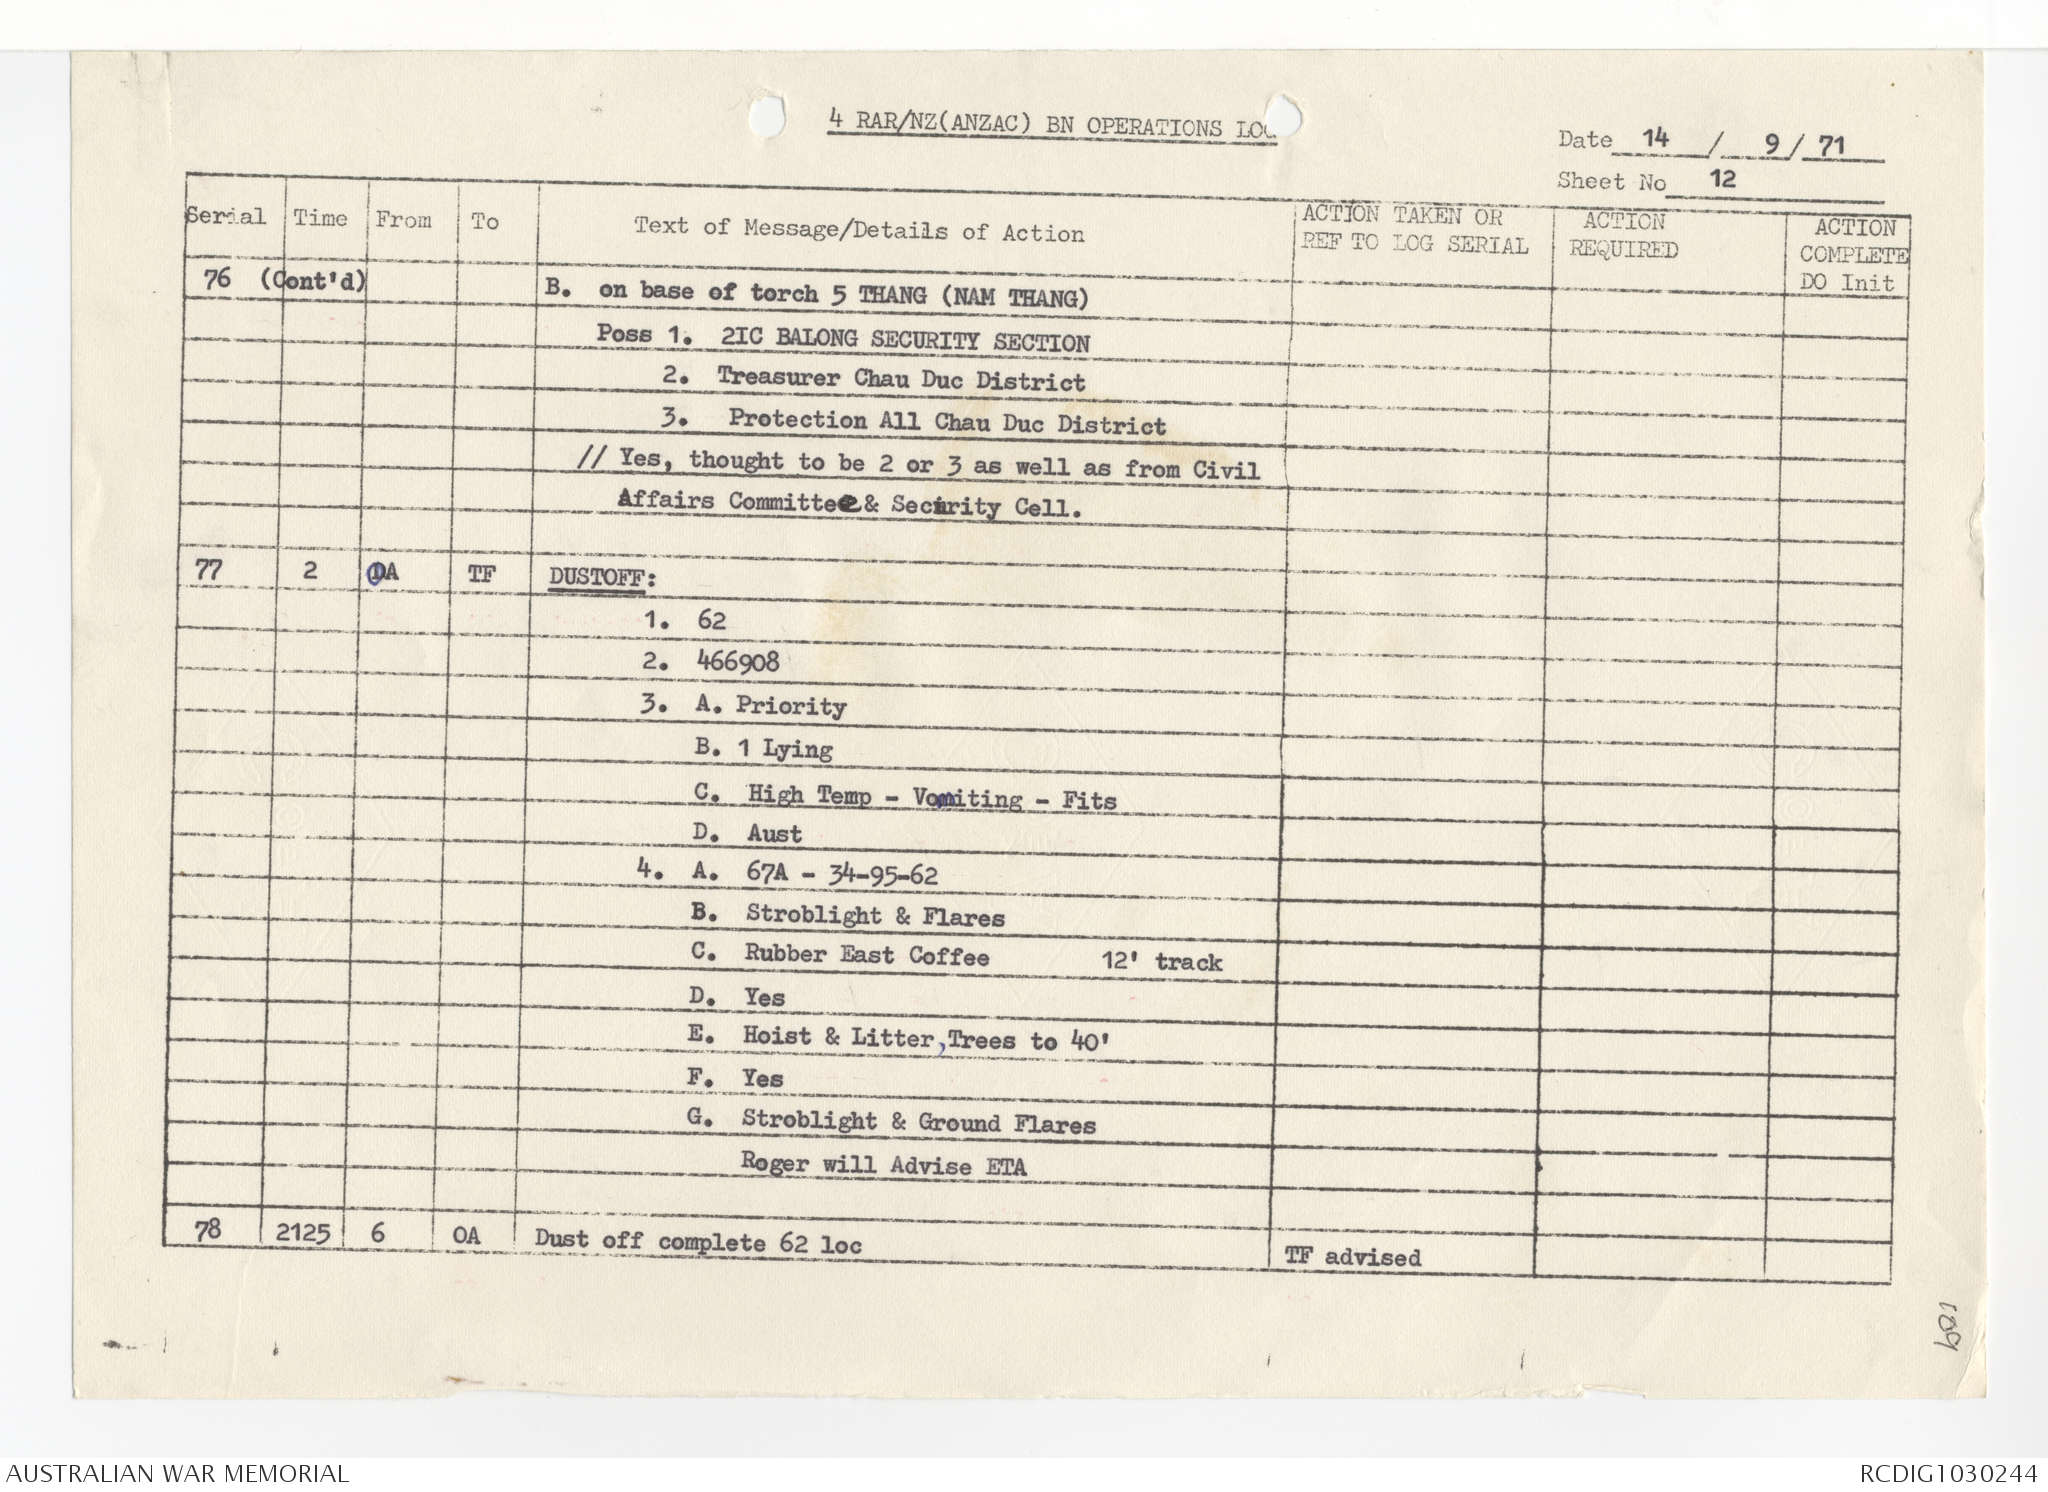 4 RAR/NZ(ANZAC) BN OPERATIONS LOG
Date 14 / 9 / 71
Sheet No 12
Serial Time From To Text of Message/Details of Action ACTION TAKEN OR REF TO LOG SERIAL ACTION REQUIRED ACTION COMPLETE DO Init
76 (Cont'd) B. on base of torch 5 THANG (NAM THANG)
Poss 1. 2IC BALONG SECURITY SECTION
2. Treasurer Chau Duc District
3. Protection All Chau Duc District
// Yes, thought to be 2 or 3 as well as from Civil
Affairs Committee & Security Cell.
77 2 OA TF DUSTOFF:
1. 62
2. 466908
3. A. Priority
B. 1 Lying
C. High Temp - Vomiting - Fits
D. Aust
4. A. 67A - 34-95-62
B. Stroblight & Flares
C. Rubber East Coffee 12' track
D. Yes
E. Hoist & Litter, Trees to 40'
F. Yes
G. Stroblight & Ground Flares
Roger will Advise ETA
78 2125 6 OA Dust off complete 62 loc TF advised
189
AUSTRALIAN WAR MEMORIAL
RCDIG1030244